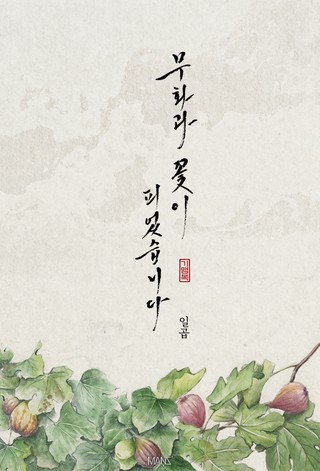 무화과 꽃이
피었습니다
일곱
MANS